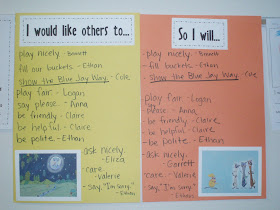 I would like others to...
play nicely. - Garrett
fill our buckets. - Ethan
Show the Blue Jay Way. - Cole
play fair. - Logan
say please. - Anna
be friendly. - Claire
be helpful. - Claire
be polite. - Ethan
ask nicely. - Eliza
care. - Valerie
say, "I'm sorry." - Ethan
So I will...
play nicely. - Garrett
fill our buckets. - Ethan
Show the Blue Jay Way. - Cole
play fair. - Logan
say please. - Anna
be friendly. - Claire
be helpful. - Claire
be polite. - Ethan
ask nicely. - Garrett
care. - Valerie
say, "I'm sorry." - Ethan